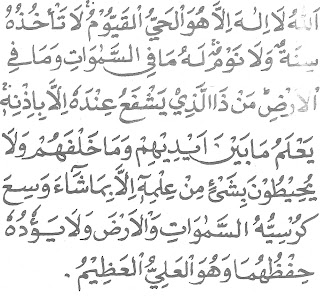 اَللّٰهُ لَا اِلٰهَ اِلَّا هُوَ الْحَيُّ الْقَيُّوْمُ ۚ لَا تَأْخُذُهٗ
سِنَةٌ وَّلَا نَوْمٌ ۗ لَهٗ مَا فِى السَّمٰوَاتِ وَمَا فِى
الْاَرْضِ ۗ مَنْ ذَا الَّذِيْ يَشْفَعُ عِنْدَهٗ اِلَّا بِاِذْنِهٖ ۗ
يَعْلَمُ مَا بَيْنَ اَيْدِيْهِمْ وَمَا خَلْفَهُمْ وَلَا
يُحِيْطُوْنَ بِشَيْءٍ مِنْ عِلْمِهٖ اِلَّا بِمَا شَاۤءَ وَسِعَ
كُرْسِيُّهُ السَّمٰوَاتِ وَالْاَرْضَ وَلَا يَؤُدُهٗ
حِفْظُهُمَا وَهُوَ الْعَلِيُّ الْعَظِيْمُ .